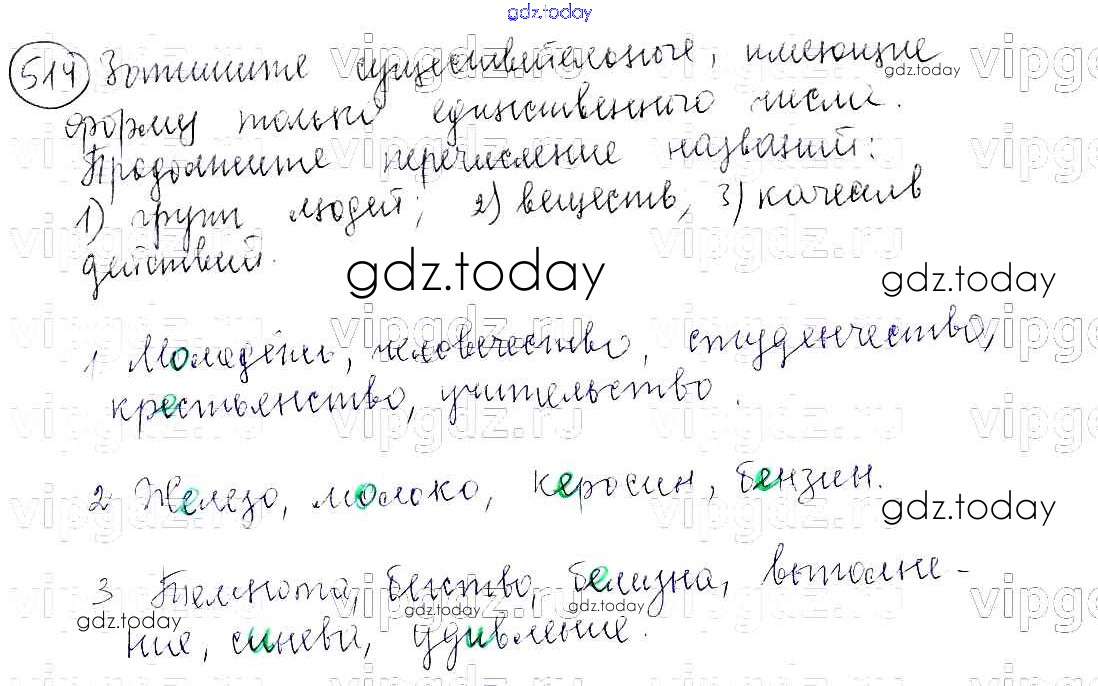 gdz.today
514) Запишите существительные, имеющие
gdz.today
форму только единственного числа.
Продолжите перечисление названий:
1) групп людей; 2) веществ; 3) качеств
действий.
gdz.today
gdz.today
1 Молодёжь, человечество, студенчество,
крестьянство, учительство.
2 Железо, молоко, керосин, бензин.
gdz.today
3 Темнота, бегство, белизна, выполне-
gdz.today gdz.today gdz.today
ние, синева, удивление.
vipgdz.ru